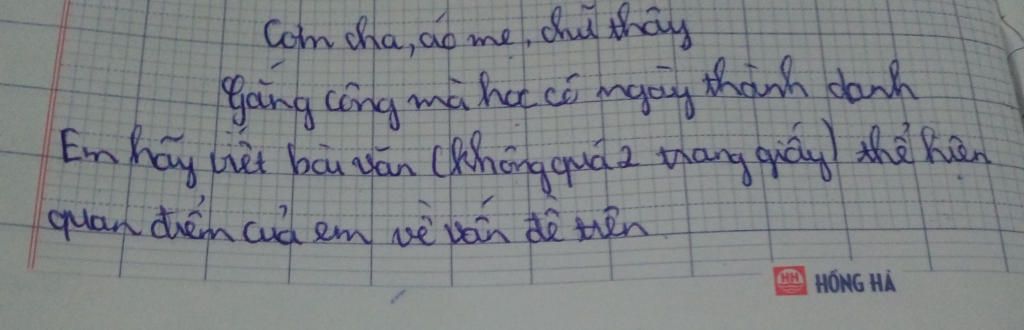 Cơm cha, áo mẹ, chữ thầy
Gắng công mà học có ngày thành danh
Em hãy viết bài văn (không quá 2 trang giấy) thể hiện
quan điểm của em về vấn đề trên
HH HỒNG HÀ